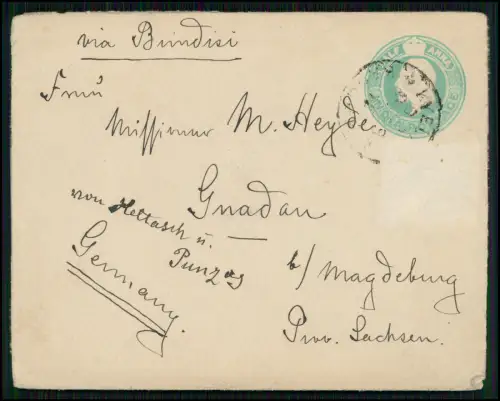 via Brindisi
HALF ANNA
Frau
Missionar M. Heyde
Gnadau
von Hettasch u.
Germany.
b/ Magdeburg
Prov. Sachsen.